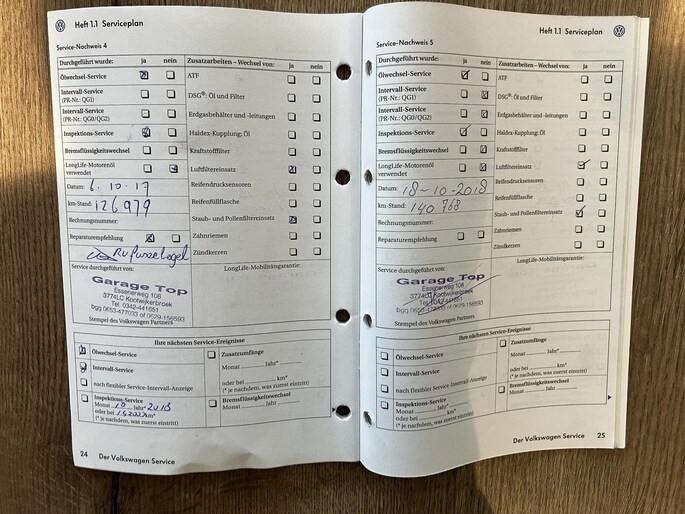 Heft 1.1 Serviceplan
Service-Nachweis 4
Durchgeführt wurde: ja nein
Ölwechsel-Service
Intervall-Service
(PR-Nr.: QG1)
Intervall-Service
(PR-Nr.: QG0/QG2)
Inspektions-Service
Bremsflüssigkeitswechsel
LongLife-Motorenöl
verwendet
Datum: 6.10.17
km-Stand: 126979
Rechnungsnummer:
Reparaturempfehlung
Service durchgeführt von:
Garage Top
Essenerweg 108
3774LC Kootwijkerbroek
Tel. 0342-441651
bgg 0653-477033 of 0629-156593
Stempel des Volkswagen Partners
Zusatzarbeiten – Wechsel von: ja nein
ATF
DSG®: Öl und Filter
Erdgasbehälter und -leitungen
Haldex-Kupplung: Öl
Kraftstofffilter
Luftfiltereinsatz
Reifendrucksensoren
Reifenfüllflasche
Staub- und Pollenfiltereinsatz
Zahnriemen
Zündkerzen
LongLife-Mobilitätsgarantie:
Ihre nächsten Service-Ereignisse
Ölwechsel-Service
Intervall-Service
nach flexibler Service-Intervall-Anzeige
Inspektions-Service
Monat 10 Jahr* 2018
oder bei km*
(* je nachdem, was zuerst eintritt)
Zusatzumfänge
Monat Jahr*
oder bei km*
(* je nachdem, was zuerst eintritt)
Bremsflüssigkeitswechsel
Monat Jahr
24 Der Volkswagen Service
Heft 1.1 Serviceplan
Service-Nachweis 5
Durchgeführt wurde: ja nein
Ölwechsel-Service
Intervall-Service
(PR-Nr.: QG1)
Intervall-Service
(PR-Nr.: QG0/QG2)
Inspektions-Service
Bremsflüssigkeitswechsel
LongLife-Motorenöl
verwendet
Datum: 18-10-2018
km-Stand: 140768
Rechnungsnummer:
Reparaturempfehlung
Service durchgeführt von:
Garage Top
Essenerweg 108
3774LC Kootwijkerbroek
Tel. 0342-441651
bgg 0653-477033 of 0629-156593
Stempel des Volkswagen Partners
Zusatzarbeiten – Wechsel von: ja nein
ATF
DSG®: Öl und Filter
Erdgasbehälter und -leitungen
Haldex-Kupplung: Öl
Kraftstofffilter
Luftfiltereinsatz
Reifendrucksensoren
Reifenfüllflasche
Staub- und Pollenfiltereinsatz
Zahnriemen
Zündkerzen
LongLife-Mobilitätsgarantie:
Ihre nächsten Service-Ereignisse
Ölwechsel-Service
Intervall-Service
nach flexibler Service-Intervall-Anzeige
Inspektions-Service
Monat Jahr*
oder bei km*
(* je nachdem, was zuerst eintritt)
Zusatzumfänge
Monat Jahr*
oder bei km*
(* je nachdem, was zuerst eintritt)
Bremsflüssigkeitswechsel
Monat Jahr
Der Volkswagen Service 25